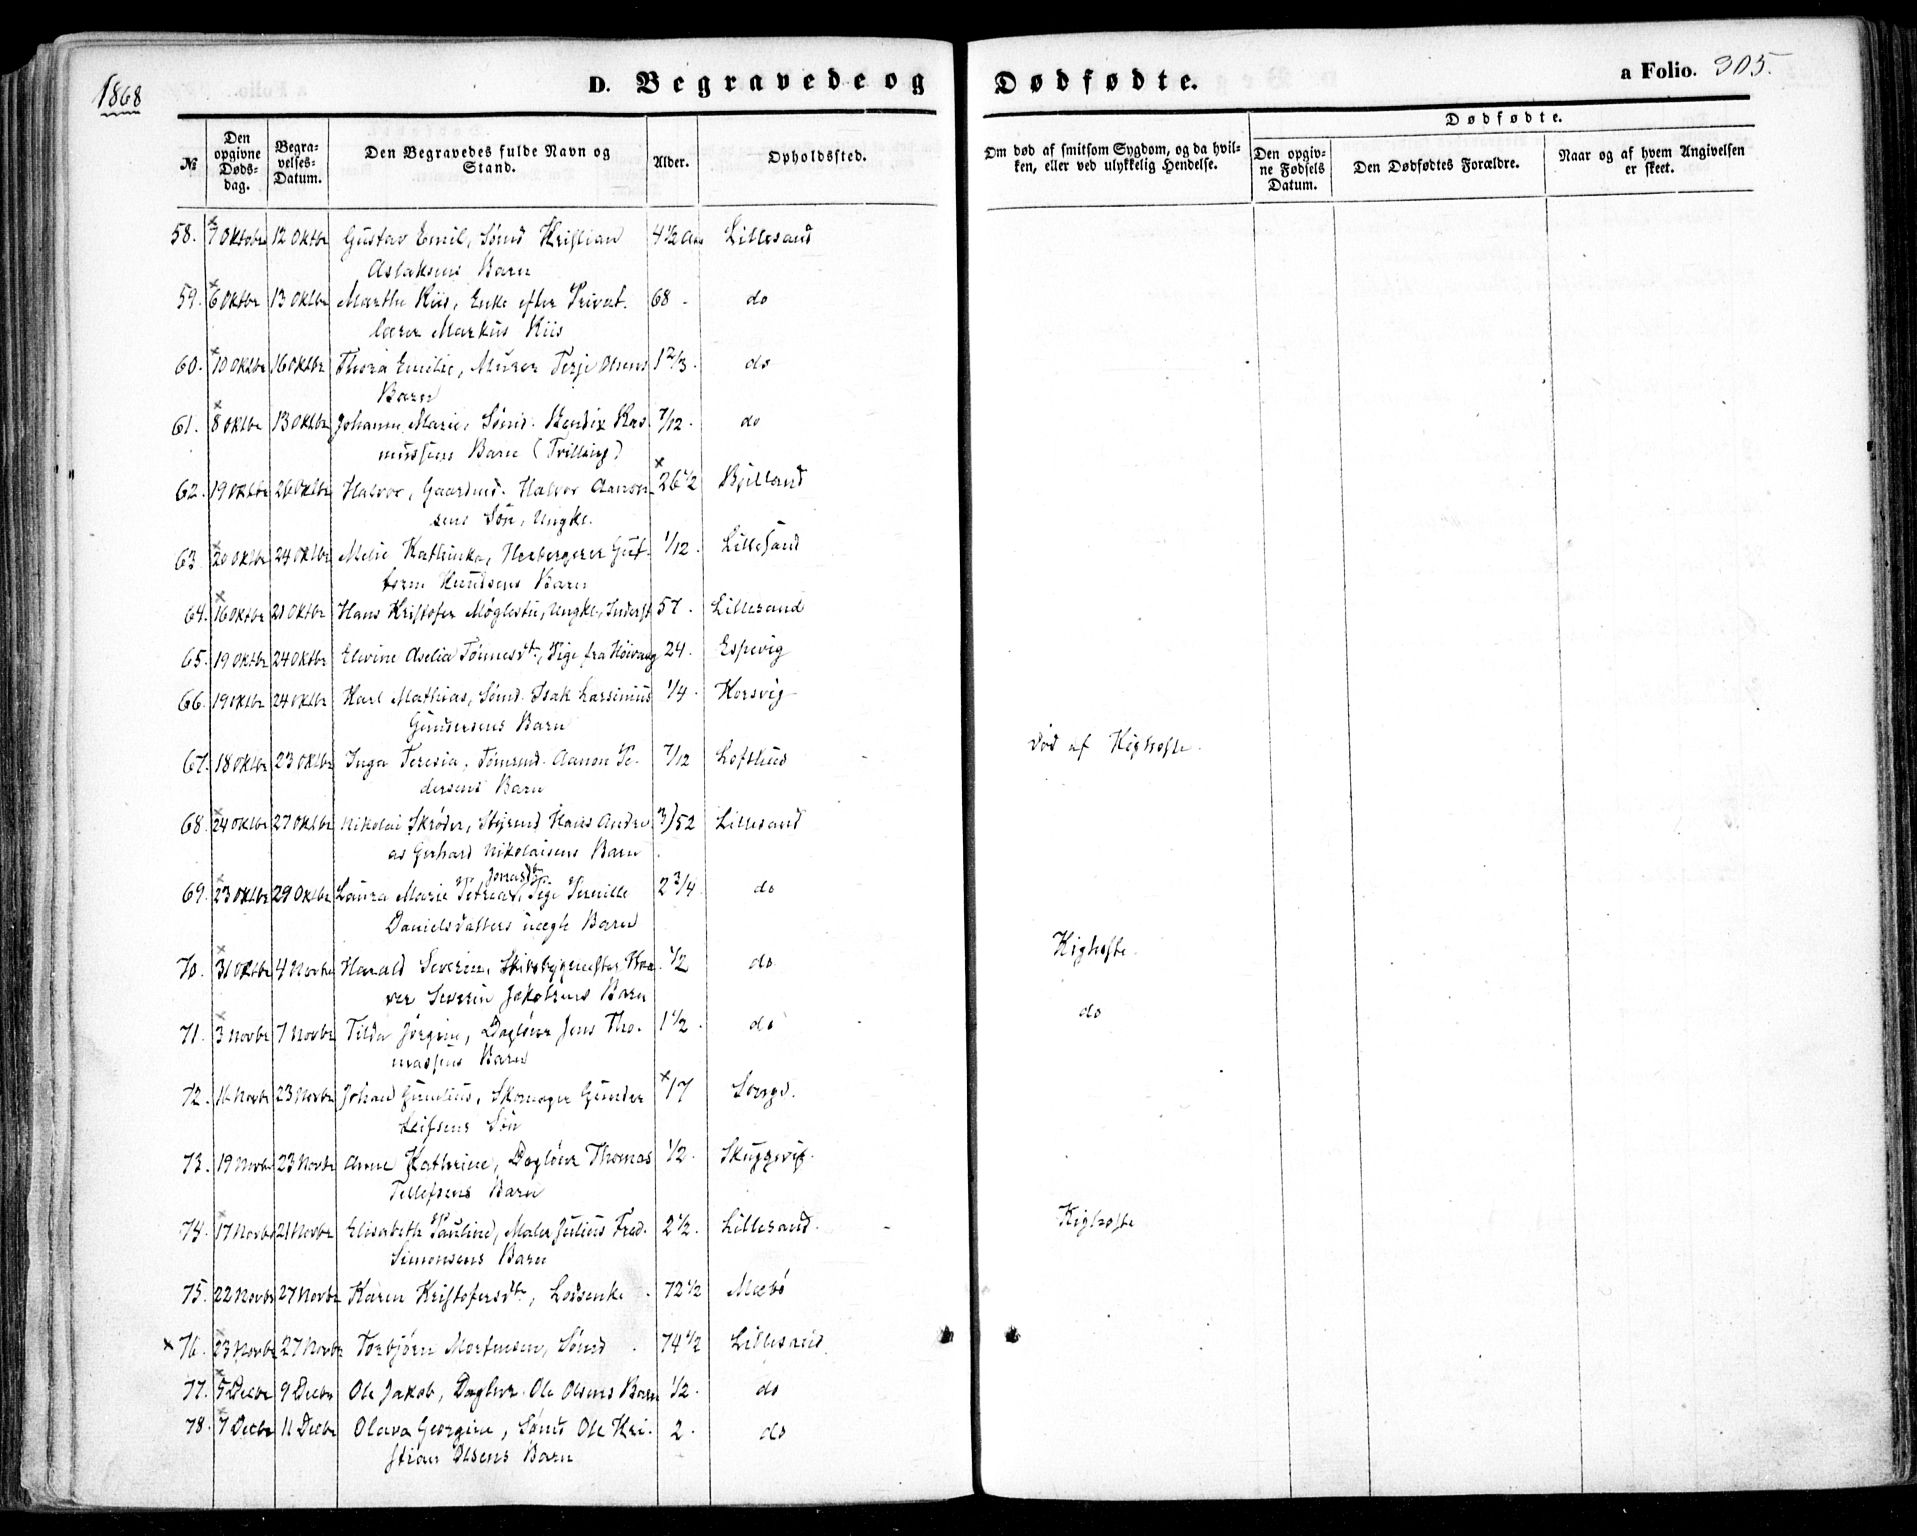 1868
D. Begravede og Dødfødte.
a Folio. 305.
№
Den opgivne Døds-dag.
Begra-velses-Datum.
Den Begravedes fulde Navn og Stand.
Alder.
Opholdssted.
Om død af smitsom Sygdom, og da hvil-ken, eller ved ulykkelig Hendelse.
Dødfødte.
Den opgiv-ne Fødsels Datum.
Den Dødfødtes Forældre.
Naar og af hvem Angivelsen er skeet.
58. 7 Oktober 12 Oktbr Gustav Emil, Sømd Kristian 4 1/2 Aar Lillesand
Aslaksens Barn
59. 6 Oktbr 13 Oktbr Marthe Kiis, Enke efter Privat- 68 - do
lærer Markus Kiis
60. 10 Oktbr 16 Oktbr Thora Emilie, Murer Terje Olsens 1 2/3. do
Barn
61. 8 Oktbr 13 Oktbr Johanne Marie, Sømd. Hendix Ras- 7/12. do
mussens Barn (Tvilling)
62. 19 Oktbr 26 Oktbr Halvor, Gaardmd. Halvor Aanon- 26 1/2 Bjelland
sens Søn, Ungkl.
63 20 Oktbr 24 Oktbr Melie Kathinka, Herbergerer Gut- 1/12. Lillesand
torm Knudsens Barn
64. 16 Oktbr 21 Oktbr Hans Kristofer Møglestu, Ungkl., Inderst 57. Lillesand
65. 19 Oktbr 24 Oktbr Elevine Aselia Tønnesdtr, Pige fra Høivaag 24. Espevig
66. 19 Oktbr 24 Oktbr Karl Mathias, Sømd. Isak Larsinius 1/4. Korsvig
Gundersens Barn
67. 18 Oktbr 23 Oktbr Inga Teresia, Tømmd. Aanon Pe- 7/12 Lofthus død af Kighoste.
dersens Barn
68. 24 Oktbr 27 Oktbr Nikolai Skrøder, Styrmd Hans Andre- 3/52 Lillesand
as Gerhard Nikolaisens Barn
69. 23 Oktbr 29 Oktbr Laura Marie Petrea Jonasdtr, Pige Pernille 2 3/4. do
Danielsdatters uægte Barn
70. 31 Oktbr 4 Novbr Harald Severin, Skibsbygmester Haa- 1/2 do Kighoste.
ver Severin Jakobsens Barn
71. 3 Novbr 7 Novbr Tilda Jørgine, Dagløner Jens Tho- 1 1/2. do do
massens Barn
72. 16 Novbr 23 Novbr Johan Gunelius, Skomager Gunder 17
Leifsens Søn
73. 19 Novbr 23 Novbr Anne Kathrine, Dagløner Thomas 1/2. Skuggevig.
Tellefsens Barn
74. 17 Novbr 21 Novbr Elisabeth Pauline, Maler Julius Fred. 2 1/2. Lillesand. Kighoste
Simonsens Barn
75. 22 Novbr 27 Novbr Karen Kristofersdtr, Lodsenke 72 1/2 Mæbø
x 76. 23 Novbr 27 Novbr Torbjørn Mortensen, Sømd 74 1/2 Lillesand
77. 5 Decbr 9 Decbr Ole Jakob, Dagløner Ole Olsens Barn 1/2. do
78. 7 Decbr 11 Decbr Olava Georgine, Sømd Ole Kri- 2. do
stian Olsens Barn